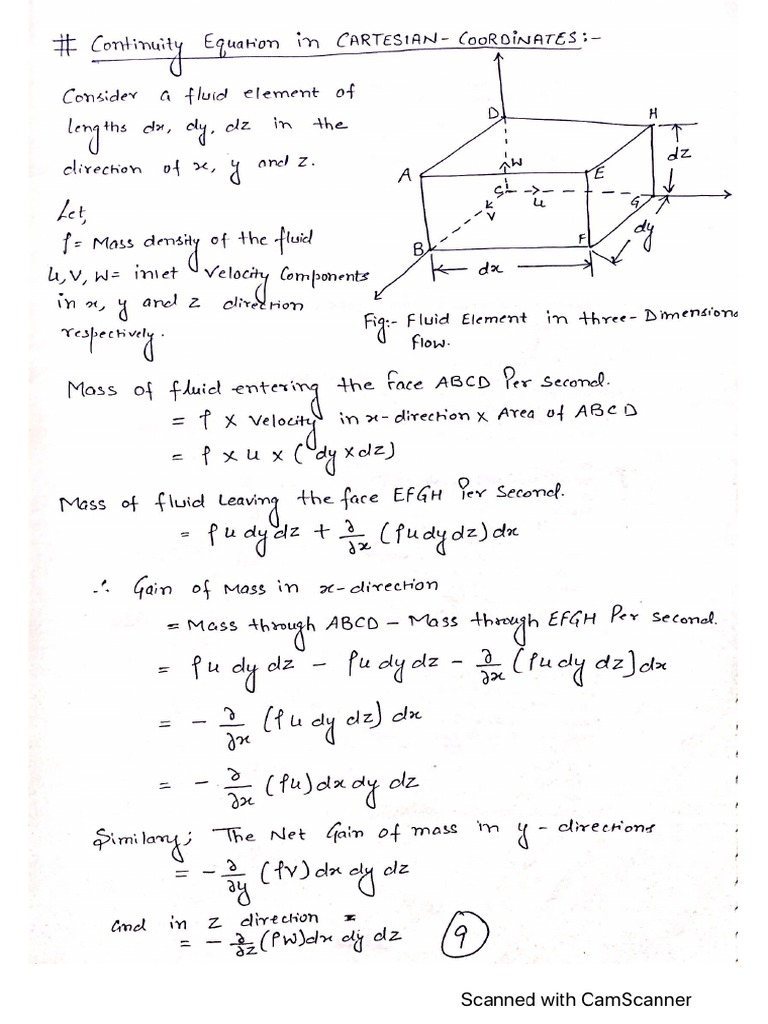 # Continuity Equation in CARTESIAN-COORDINATES:-
Consider a fluid element of
lengths dx, dy, dz in the
direction of x, y and z.
Let,
ρ = Mass density of the fluid
u, v, w = inlet velocity Components
in x, y and z direction
respectively.
D
H
dz
A
W
E
C
u
G
V
dy
B
F
dx
Fig:- Fluid Element in three-Dimensiona
flow.
Mass of fluid entering the face ABCD Per second.
= ρ x velocity in x-direction x Area of ABCD
= ρ x u x (dy x dz)
Mass of fluid Leaving the face EFGH Per Second.
= ρu dy dz + ∂/∂x (ρu dy dz) dx
∴ Gain of Mass in x-direction
= Mass through ABCD - Mass through EFGH Per second.
= ρu dy dz - ρu dy dz - ∂/∂x (ρu dy dz] dx
= - ∂/∂x (ρu dy dz) dx
= - ∂/∂x (ρu) dx dy dz
Similary; The Net Gain of mass in y-directions
= - ∂/∂y (ρv) dx dy dz
and in z direction =
= - ∂/∂z (ρw) dx dy dz
9
Scanned with CamScanner